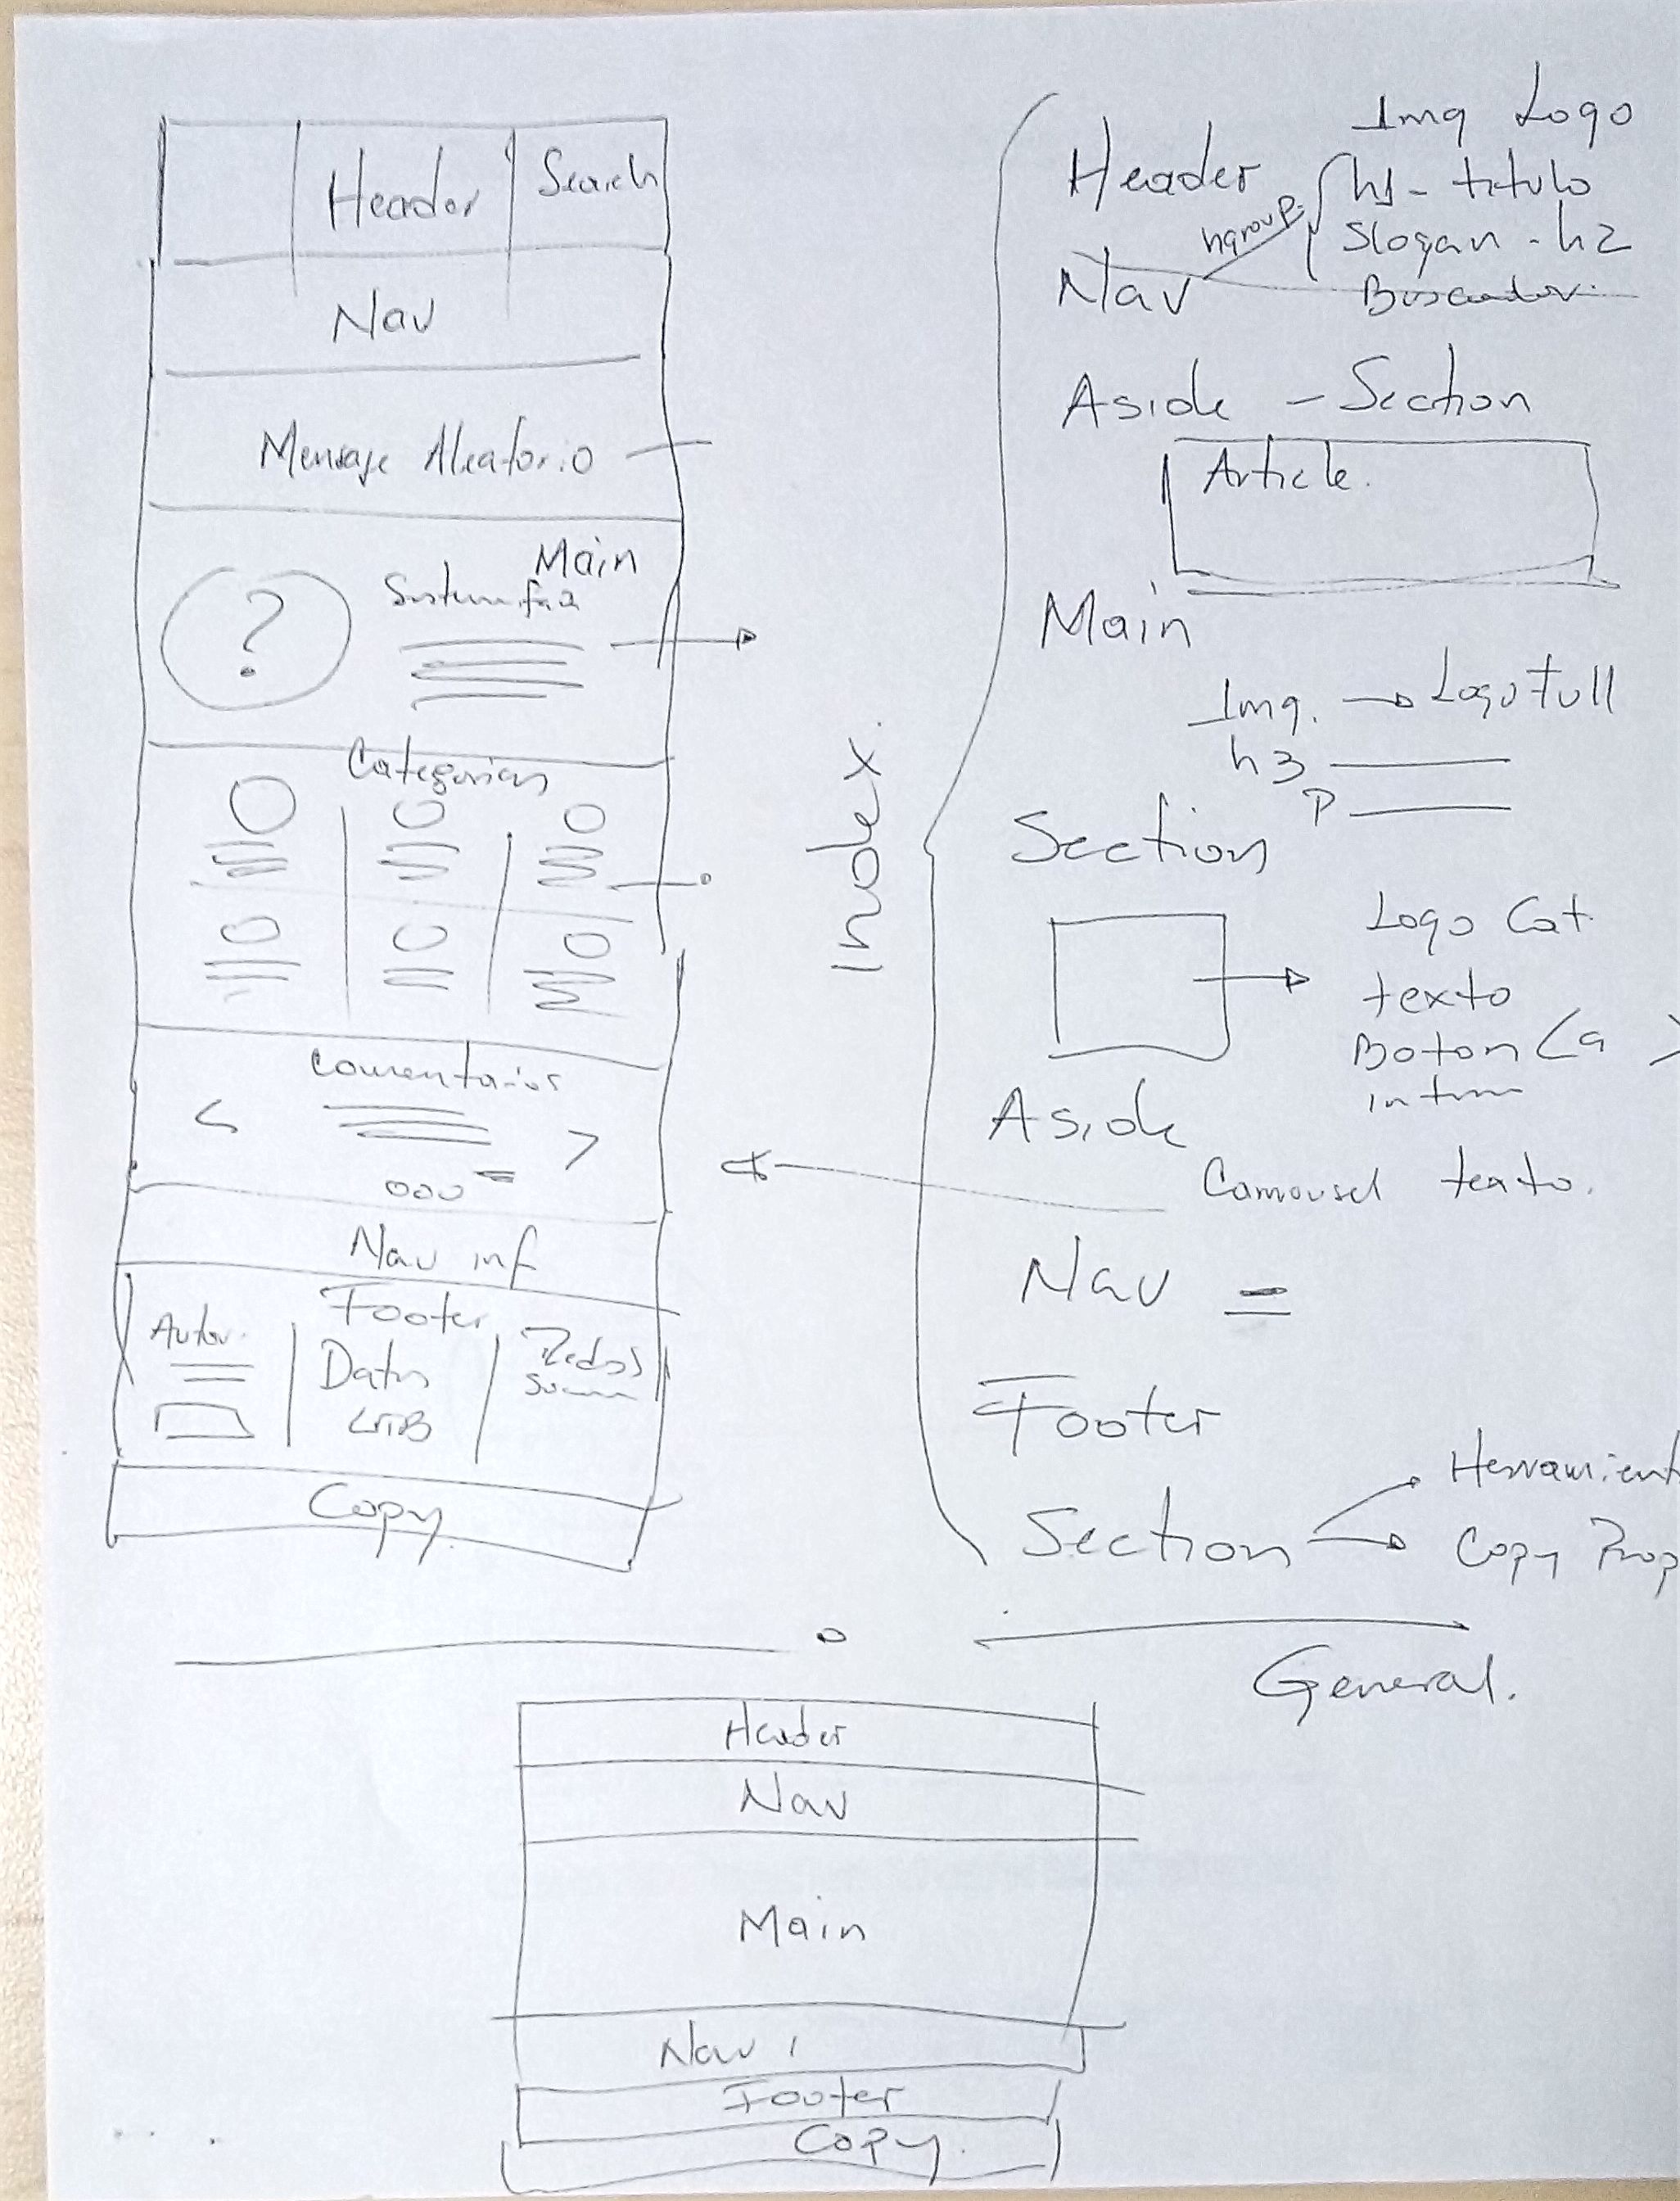 Header
Search
Nav
Mensaje Aleatorio
Main
?
Categorias
Comentarios
< >
Nav inf
Footer
Autor.
Datos
Redes
Copy
Index.
Header
Img Logo
h1 - titulo
hgroup
Slogan - h2
Nav
Buscador.
Aside - Section
Article.
Main
Img. → Logo full
h3
P
Section
Logo Cat.
texto
Boton <a >
Aside
Carrousel texto.
Nav =
Footer
Section
Herramient
Copy Prop
General.
Header
Nav
Main
Nav i
Footer
Copy.